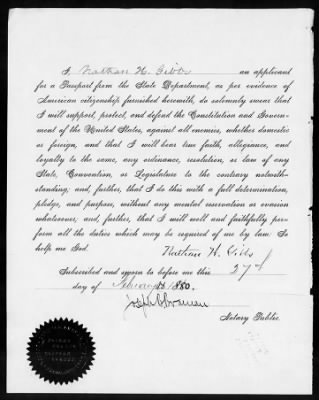 I, Nathan H. Gibbs an applicant
for a Passport from the State Department, as per evidence of
American citizenship furnished herewith, do solemnly swear that
I will support, protect, and defend the Constitution and Govern-
ment of the United States, against all enemies, whether domestic
or foreign, and that I will bear true faith, allegiance, and
loyalty to the same, any ordinance, resolution, or law of any
State, Convention, or Legislature to the contrary notwith-
standing; and, further, that I do this with a full determination,
pledge, and purpose, without any mental reservation or evasion
whatsoever; and, further, that I will well and faithfully per-
form all the duties which may be required of me by law: So
help me God.
Nathan H. Gibbs
Subscribed and sworn to before me this 27
day of February 1880.
Joseph
Notary Public.